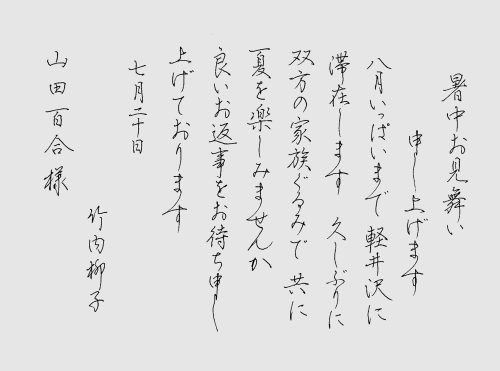 暑中お見舞い
申し上げます
八月いっぱいまで 軽井沢に
滞在します 久しぶりに
双方の家族ぐるみで 共に
夏を楽しみませんか
良いお返事をお待ち申し
上げております
七月二十日
竹内柳子
山田百合様